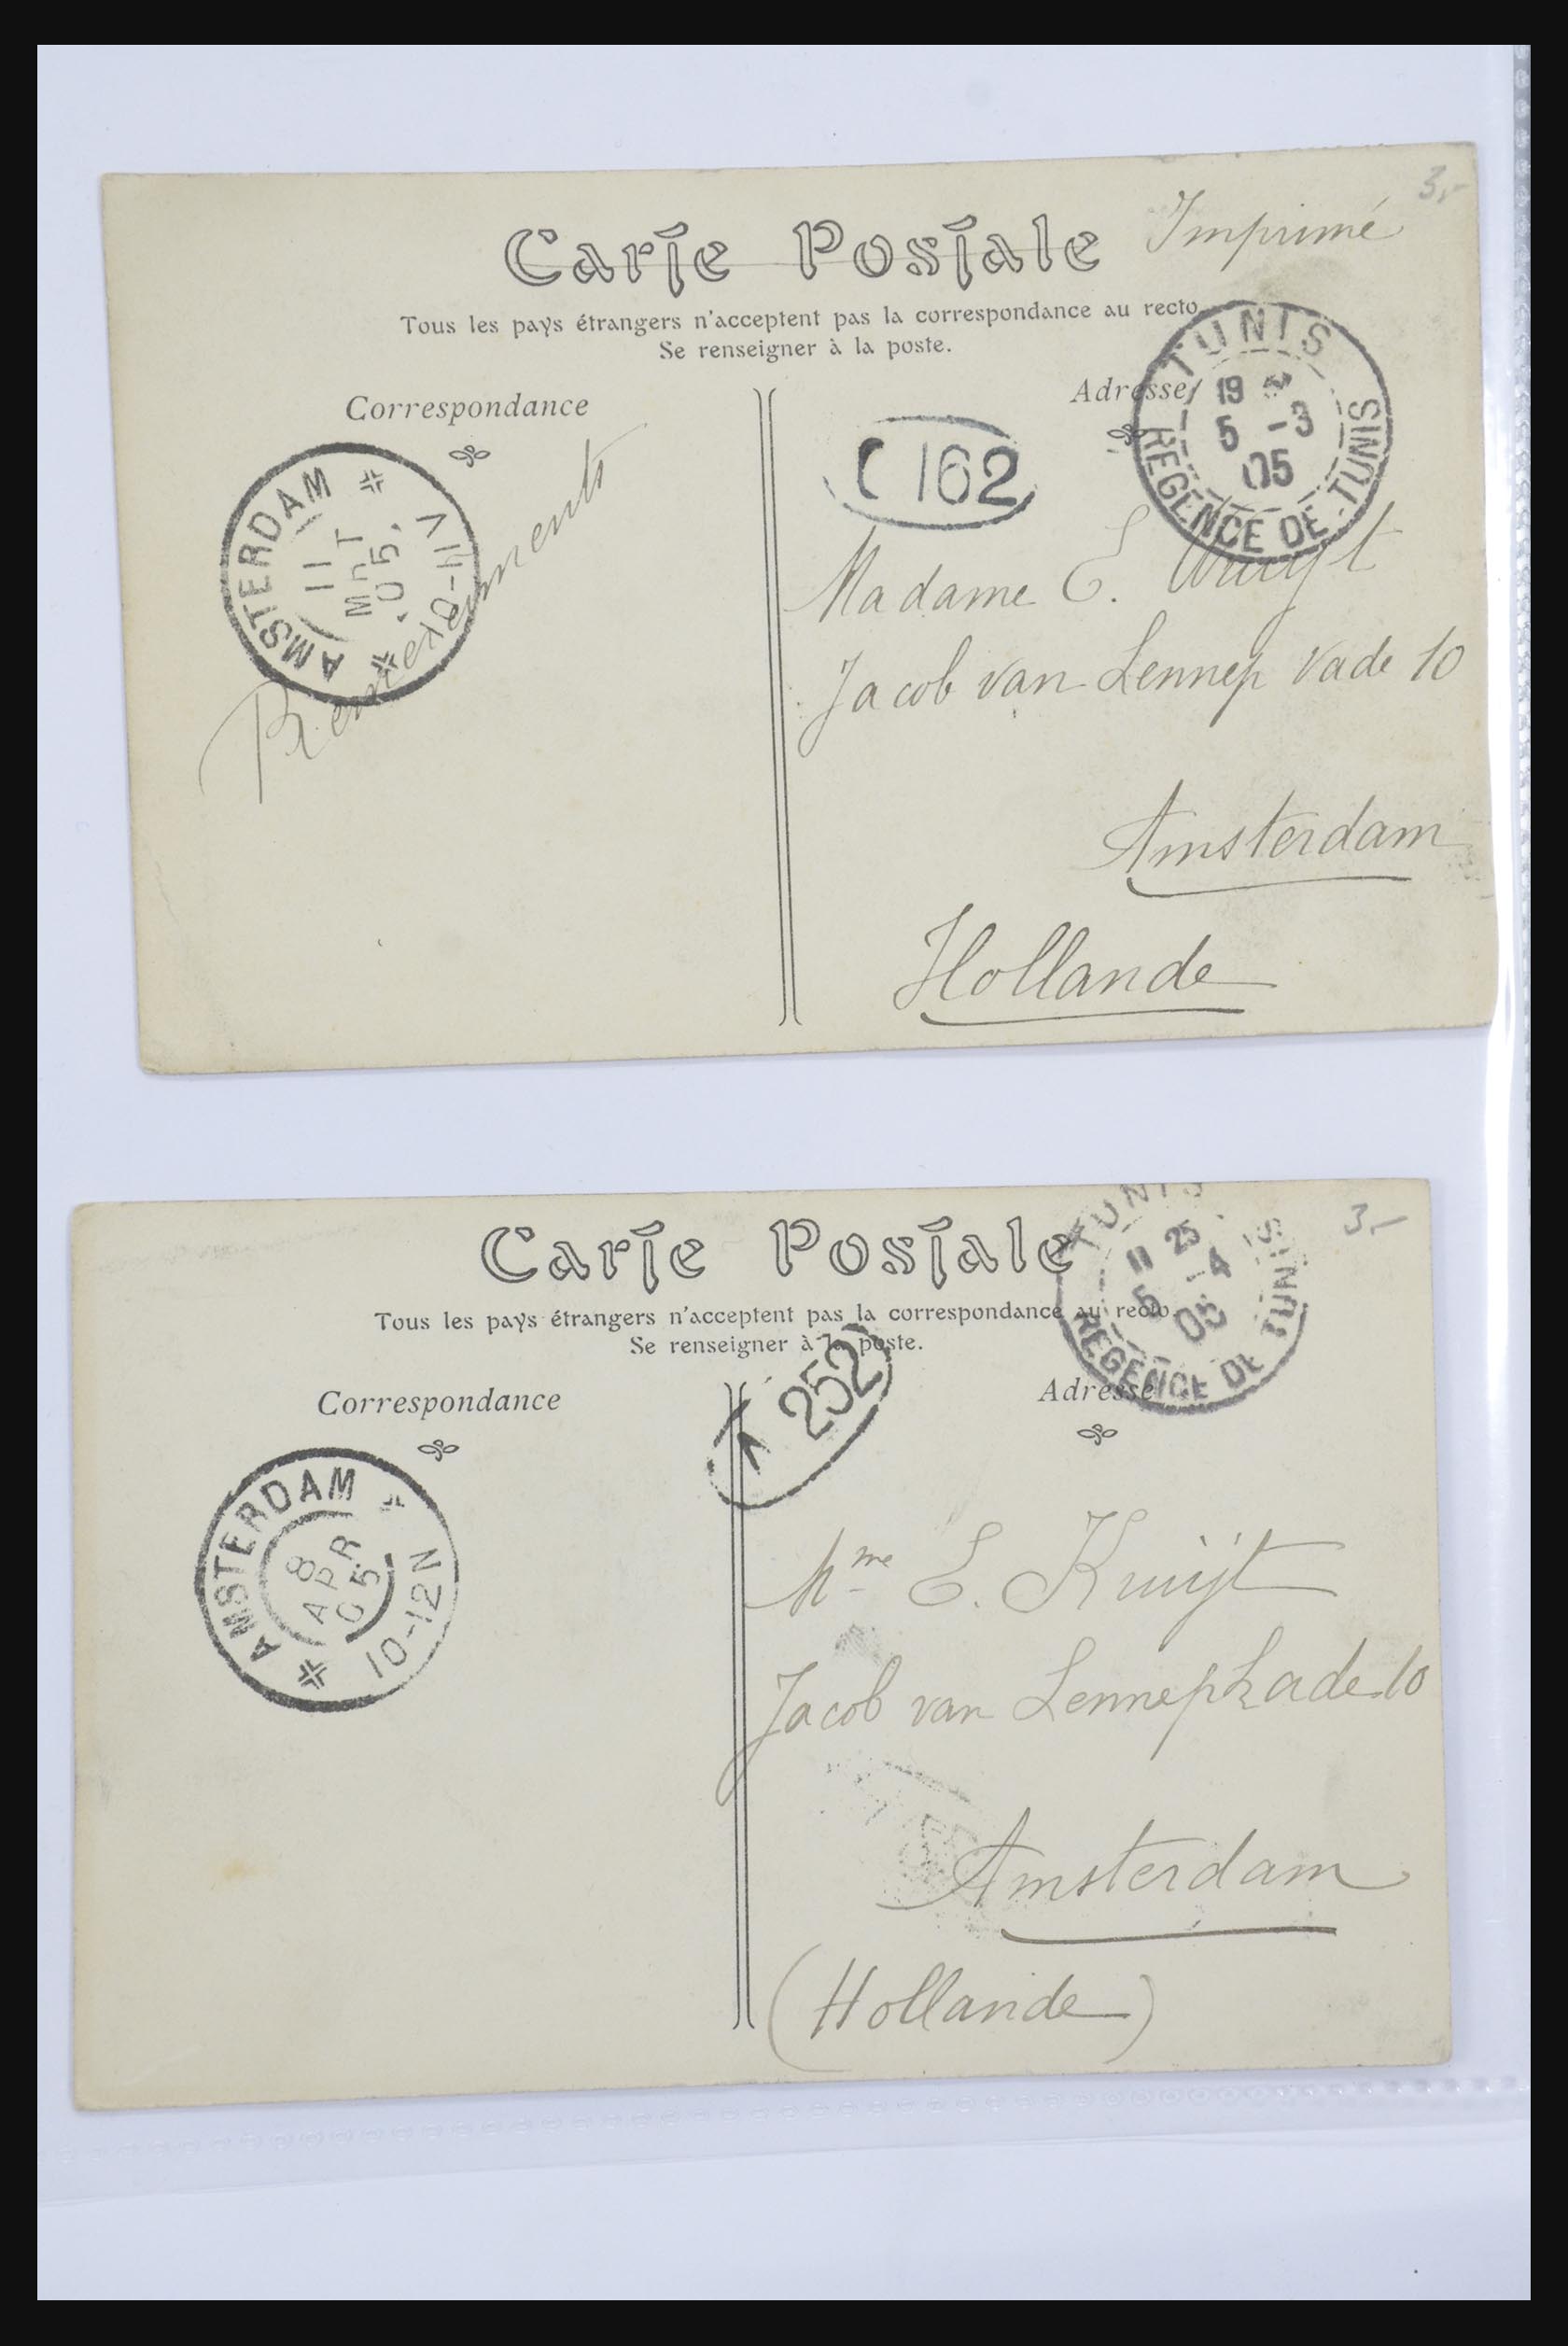 3,-
Carte Postale
Imprimé
Tous les pays étrangers n'acceptent pas la correspondance au recto.
Se renseigner à la poste.
Correspondance
Adresse
TUNIS
19
5 -3
05
REGENCE DE TUNIS
C 162
AMSTERDAM
11
MRT
05
Remerciements
Madame E. Kruijt
Jacob van Lennep Kade 10
Amsterdam
Hollande
3,-
Carte Postale
Tous les pays étrangers n'acceptent pas la correspondance au recto.
Se renseigner à la poste.
Correspondance
Adresse
TUNIS
11 25
5 -4
05
REGENCE DE TUNIS
252
AMSTERDAM
8
APR
05
10-12N
Mme E. Kruijt
Jacob van Lennepkade 10
Amsterdam
(Hollande)